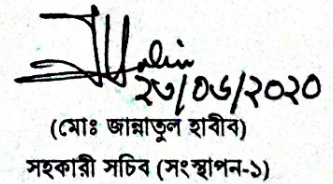 ২৩/০৬/২০২০
(মোঃ জান্নাতুল হাবীব)
সহকারী সচিব (সংস্থাপন-১)